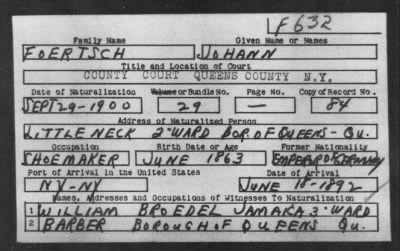 F632
Family Name Given Name or Names
FOERTSCH JOHANN
Title and Location of Court
COUNTY COURT QUEENS COUNTY N.Y.
Date of Naturalization Volume or Bundle No. Page No. Copy of Record No.
SEPT 29-1900 29 — 84
Address of Naturalized Person
LITTLE NECK 2" WARD BOR. OF QUEENS - QU.
Occupation Birth Date or Age Former Nationality
SHOEMAKER JUNE 1863 EMPEROR GERMANY
Port of Arrival in the United States Date of Arrival
NY-NY JUNE 18-1892
Names, Addresses and Occupations of Witnesses To Naturalization
1 WILLIAM BROEDEL JAMAICA 3" WARD
2 BARBER BOROUGH OF QUEENS QU.